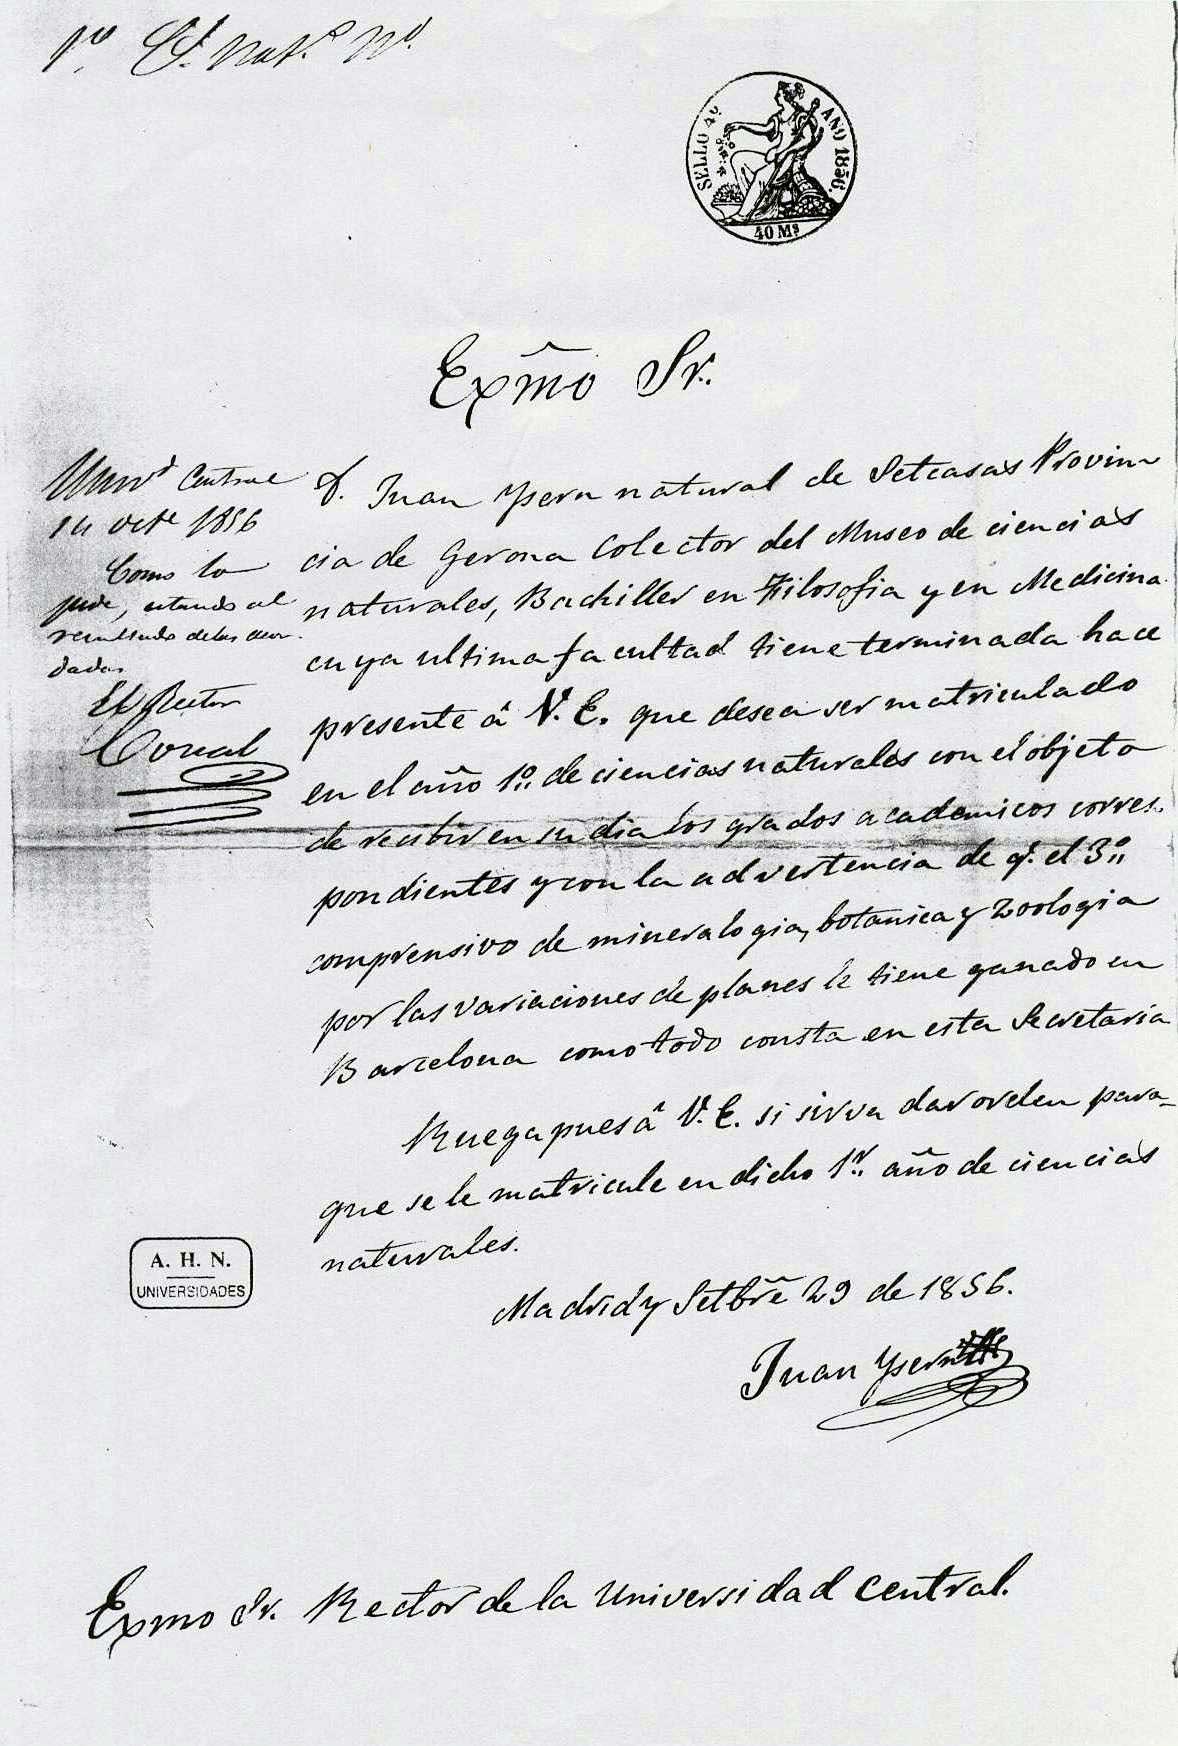 1º Cˢ. Natˢ. Nº.
SELLO 4º. AÑO 1856.
40 Mˢ
Exm̃o Sr.
Univᵈ Central
14 octᵉ 1856
Como lo
pide, estando al
resultado de las acor-
dadas
El Rector
Corral
D. Juan Ysern natural de Setcasas Provin-
cia de Gerona Colector del Museo de ciencias
naturales, Bachiller en Filosofia y en Medicina
cuya ultima facultad tiene terminada hace
presente â V. E. que desea ser matriculado
en el año 1º. de ciencias naturales con el objeto
de recibir en su dia los grados academicos corres-
pondientes y con la advertencia de q. el 3º.
comprensivo de mineralogia, botanica y zoologia
por las variaciones de planes le tiene ganado en
Barcelona como todo consta en esta Secretaria
Ruega pues â V. E. si sirva dar orden para
que se le matricule en dicho 1r. año de ciencias
naturales.
Madrid y Setbr̃e 29 de 1856.
Juan Ysern
A. H. N.
UNIVERSIDADES
Exmo Sr. Rector de la Universidad Central.